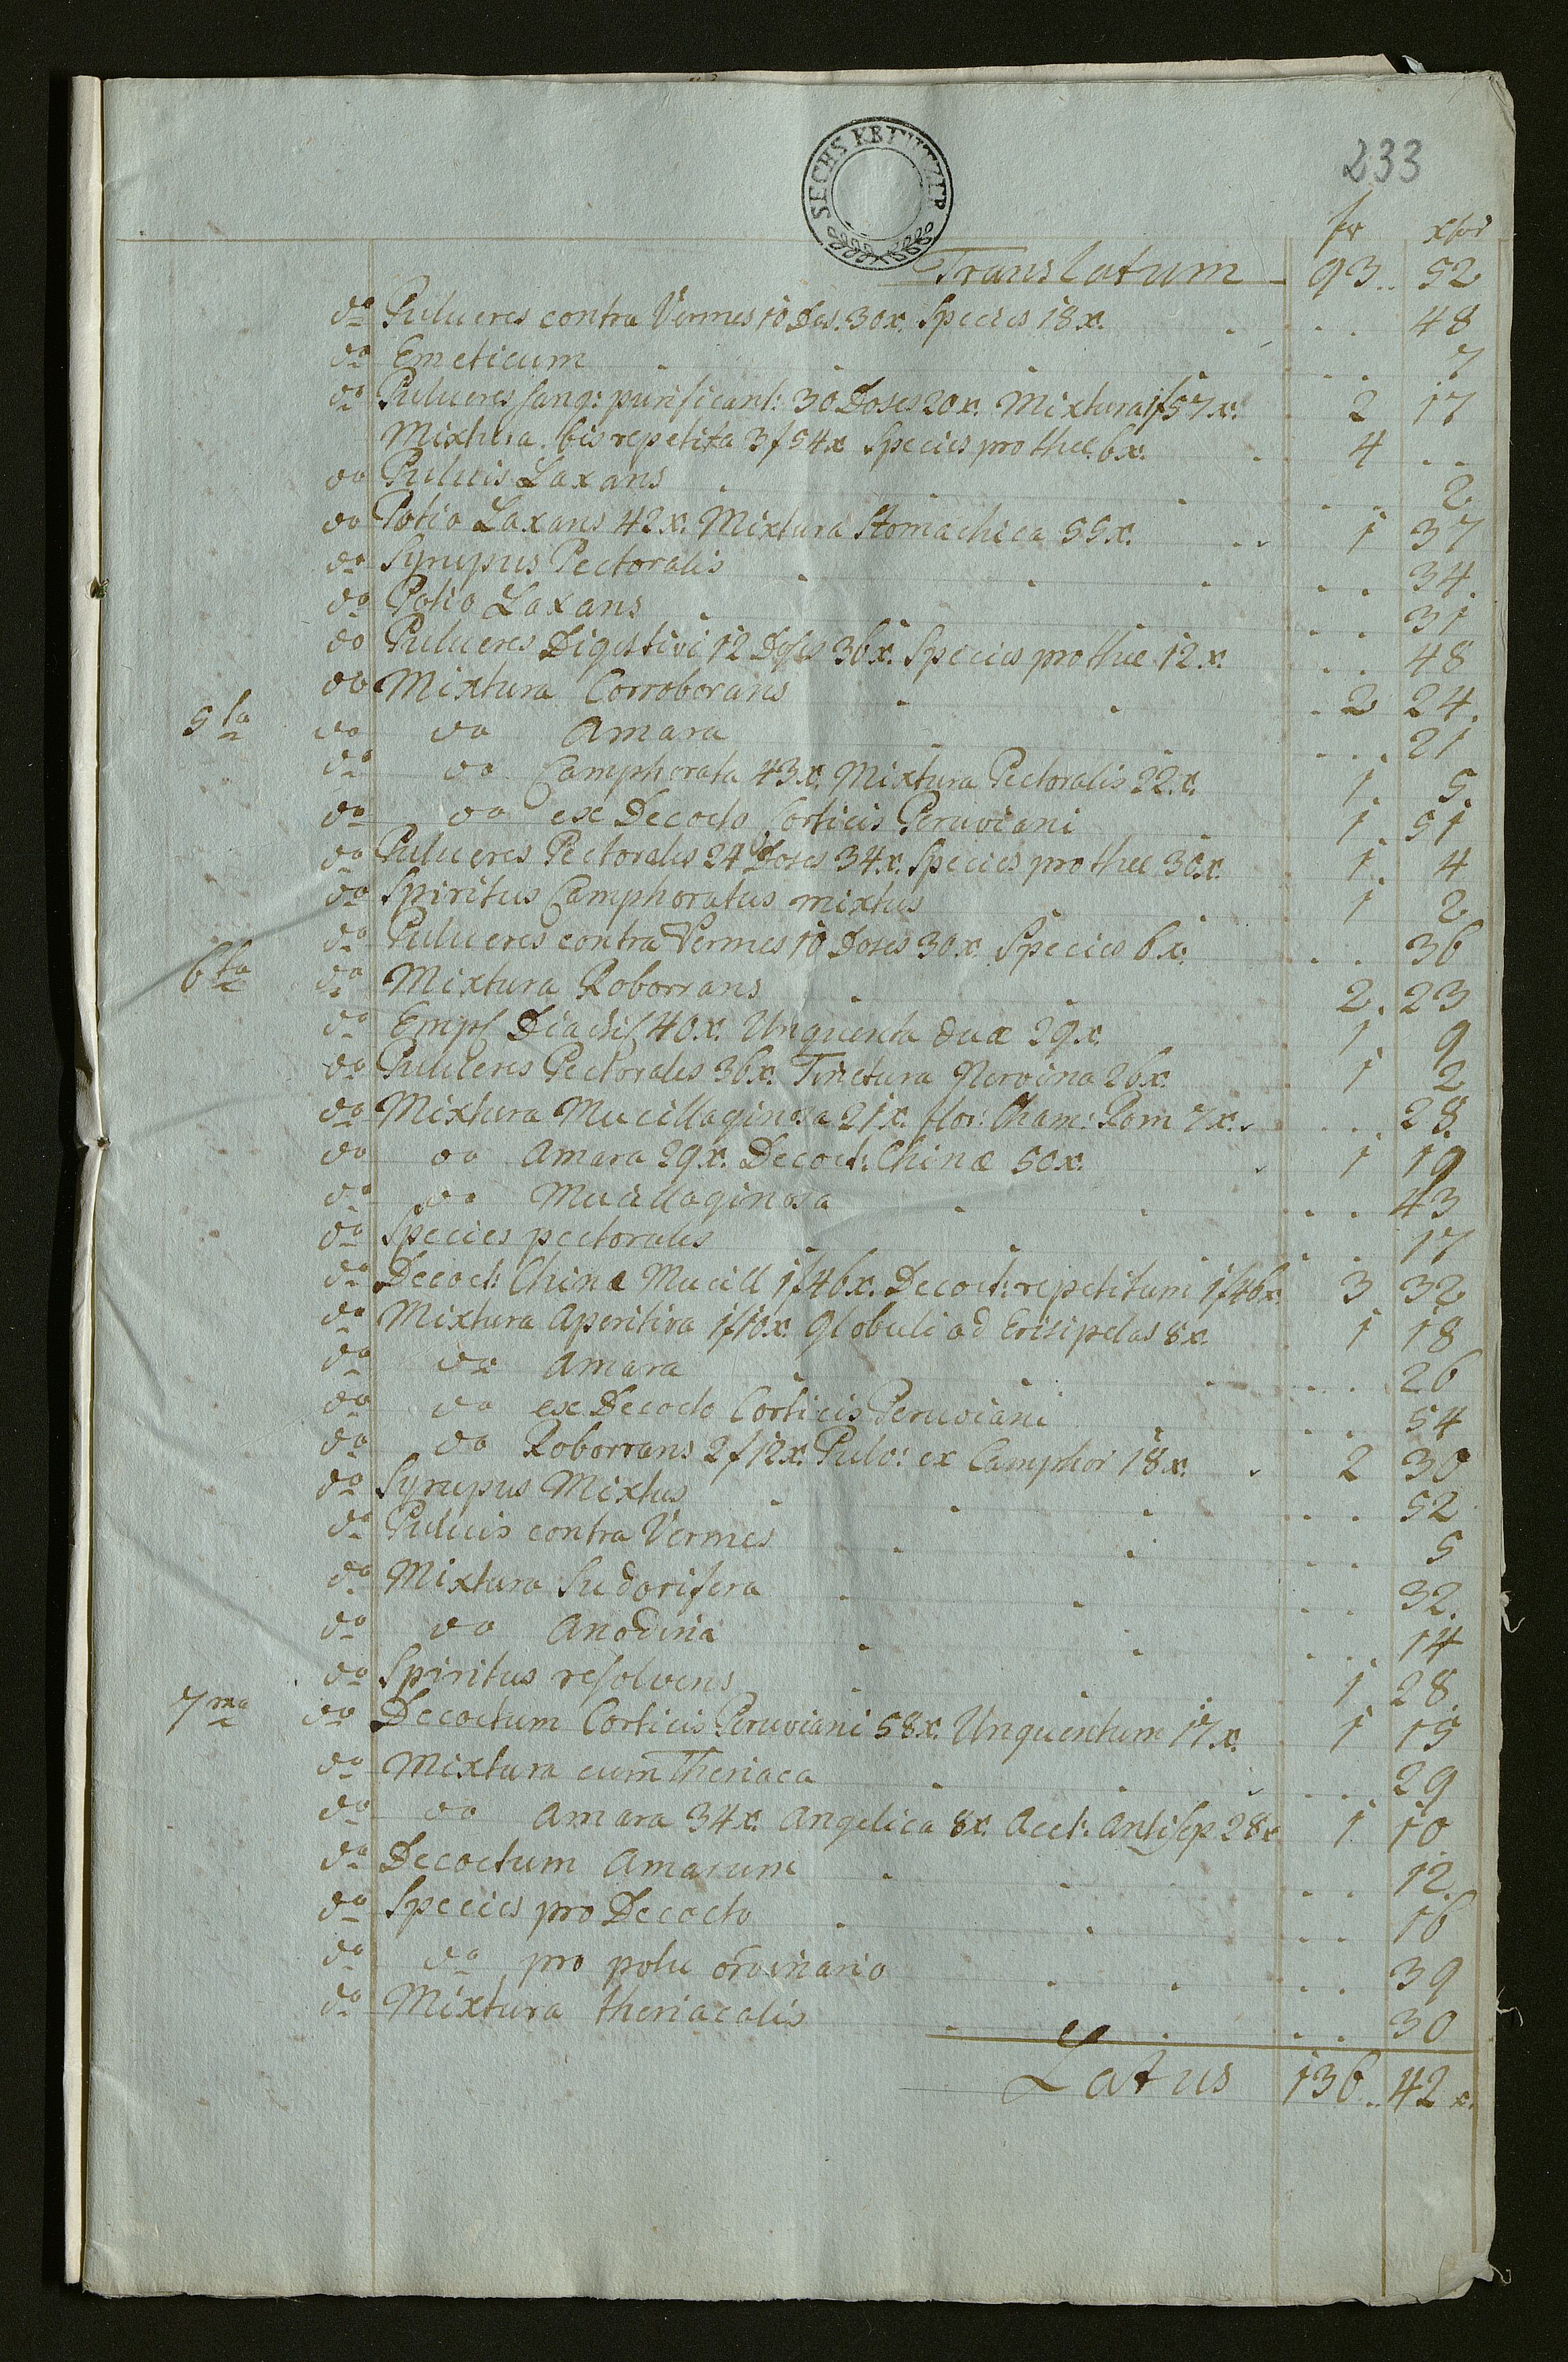 SECHS KREUTZER
233
fx xfer
Translatum 93.. 52
do Pulueres contra Vermes 10 Dos. 30x. Species 18x. . . . 48
do Emeticum . . . 7
do Pulueres sang: purificant: 30 Doses 20x. Mixtura 1f57x. 2 17
Mixtura bis repetita 3f54x Species pro thee 6x. 4 . .
do Puluis Laxans . . . 2
do Potio Laxans 42x. Mixtura Stomachica 55x. 1 37
do Syrupus Pectoralis . . . 34.
do Potio Laxans . . . 31
do Pulueres Digestivi 12 Doses 36x. Species pro thee 12x. . . 48
do Mixtura Corroborans 2 24.
5ta do do Amara . . . 21
do do Camphorata 43x. Mixtura Pectoralis 22x. 1. 5.
do do ex Decocto Corticis Peruviani 1. 51
do Pulueres Pectorales 24 Doses 34x. Species pro thee 30x. 1. 4
do Spiritus Camphoratus mixtus 1 2
do Pulueres contra Vermes 10 Doses 30x. Species 6x. . . 36
6ta do Mixtura Roborrans 2. 23
do Empl Diachil 40x. Unguenta duæ 29x. 1. 9
do Pulueres Pectorales 36x. Tinctura Nervina 26x. 1 2
do Mixtura Mucillaginosa 21x. flor: Cham: Rom 7x. . . . 28.
do do Amara 29x. Decoct: Chinæ 50x. 1 19
do do Mucillaginosa . . . 43
do Species pectorales . . . 17
do Decoct: Chinæ Mucill 1f46x. Decoct: repetitum 1f46x. 3 32
do Mixtura Aperitiva 1f10x. Globuli ad Erisipelas 8x. 1 18
do do Amara . . . 26
do do ex Decocto Corticis Peruviani . . 54
do do Roborrans 2f12x. Pulv: ex Camphor 18x. 2 30
do Syrupus Mixtus . . . 52
do Puluis contra Vermes . . . 5
do Mixtura Sudorifera . . . 32.
do do Anodina . . . 14
do Spiritus resolvens 1. 28.
7ma do Decoctum Corticis Peruviani 58x. Unguentum 17x. 1 15
do Mixtura cum Theriaca . . . 29
do do Amara 34x. Angelica 8x. Acet: Antisep 28x 1 10
do Decoctum Amarum . . . 12.
do Species pro Decocto . . . 16
do do pro potu ordinario . . . 39
do Mixtura theriacalis . . . 30
Latus 136.. 42 x.